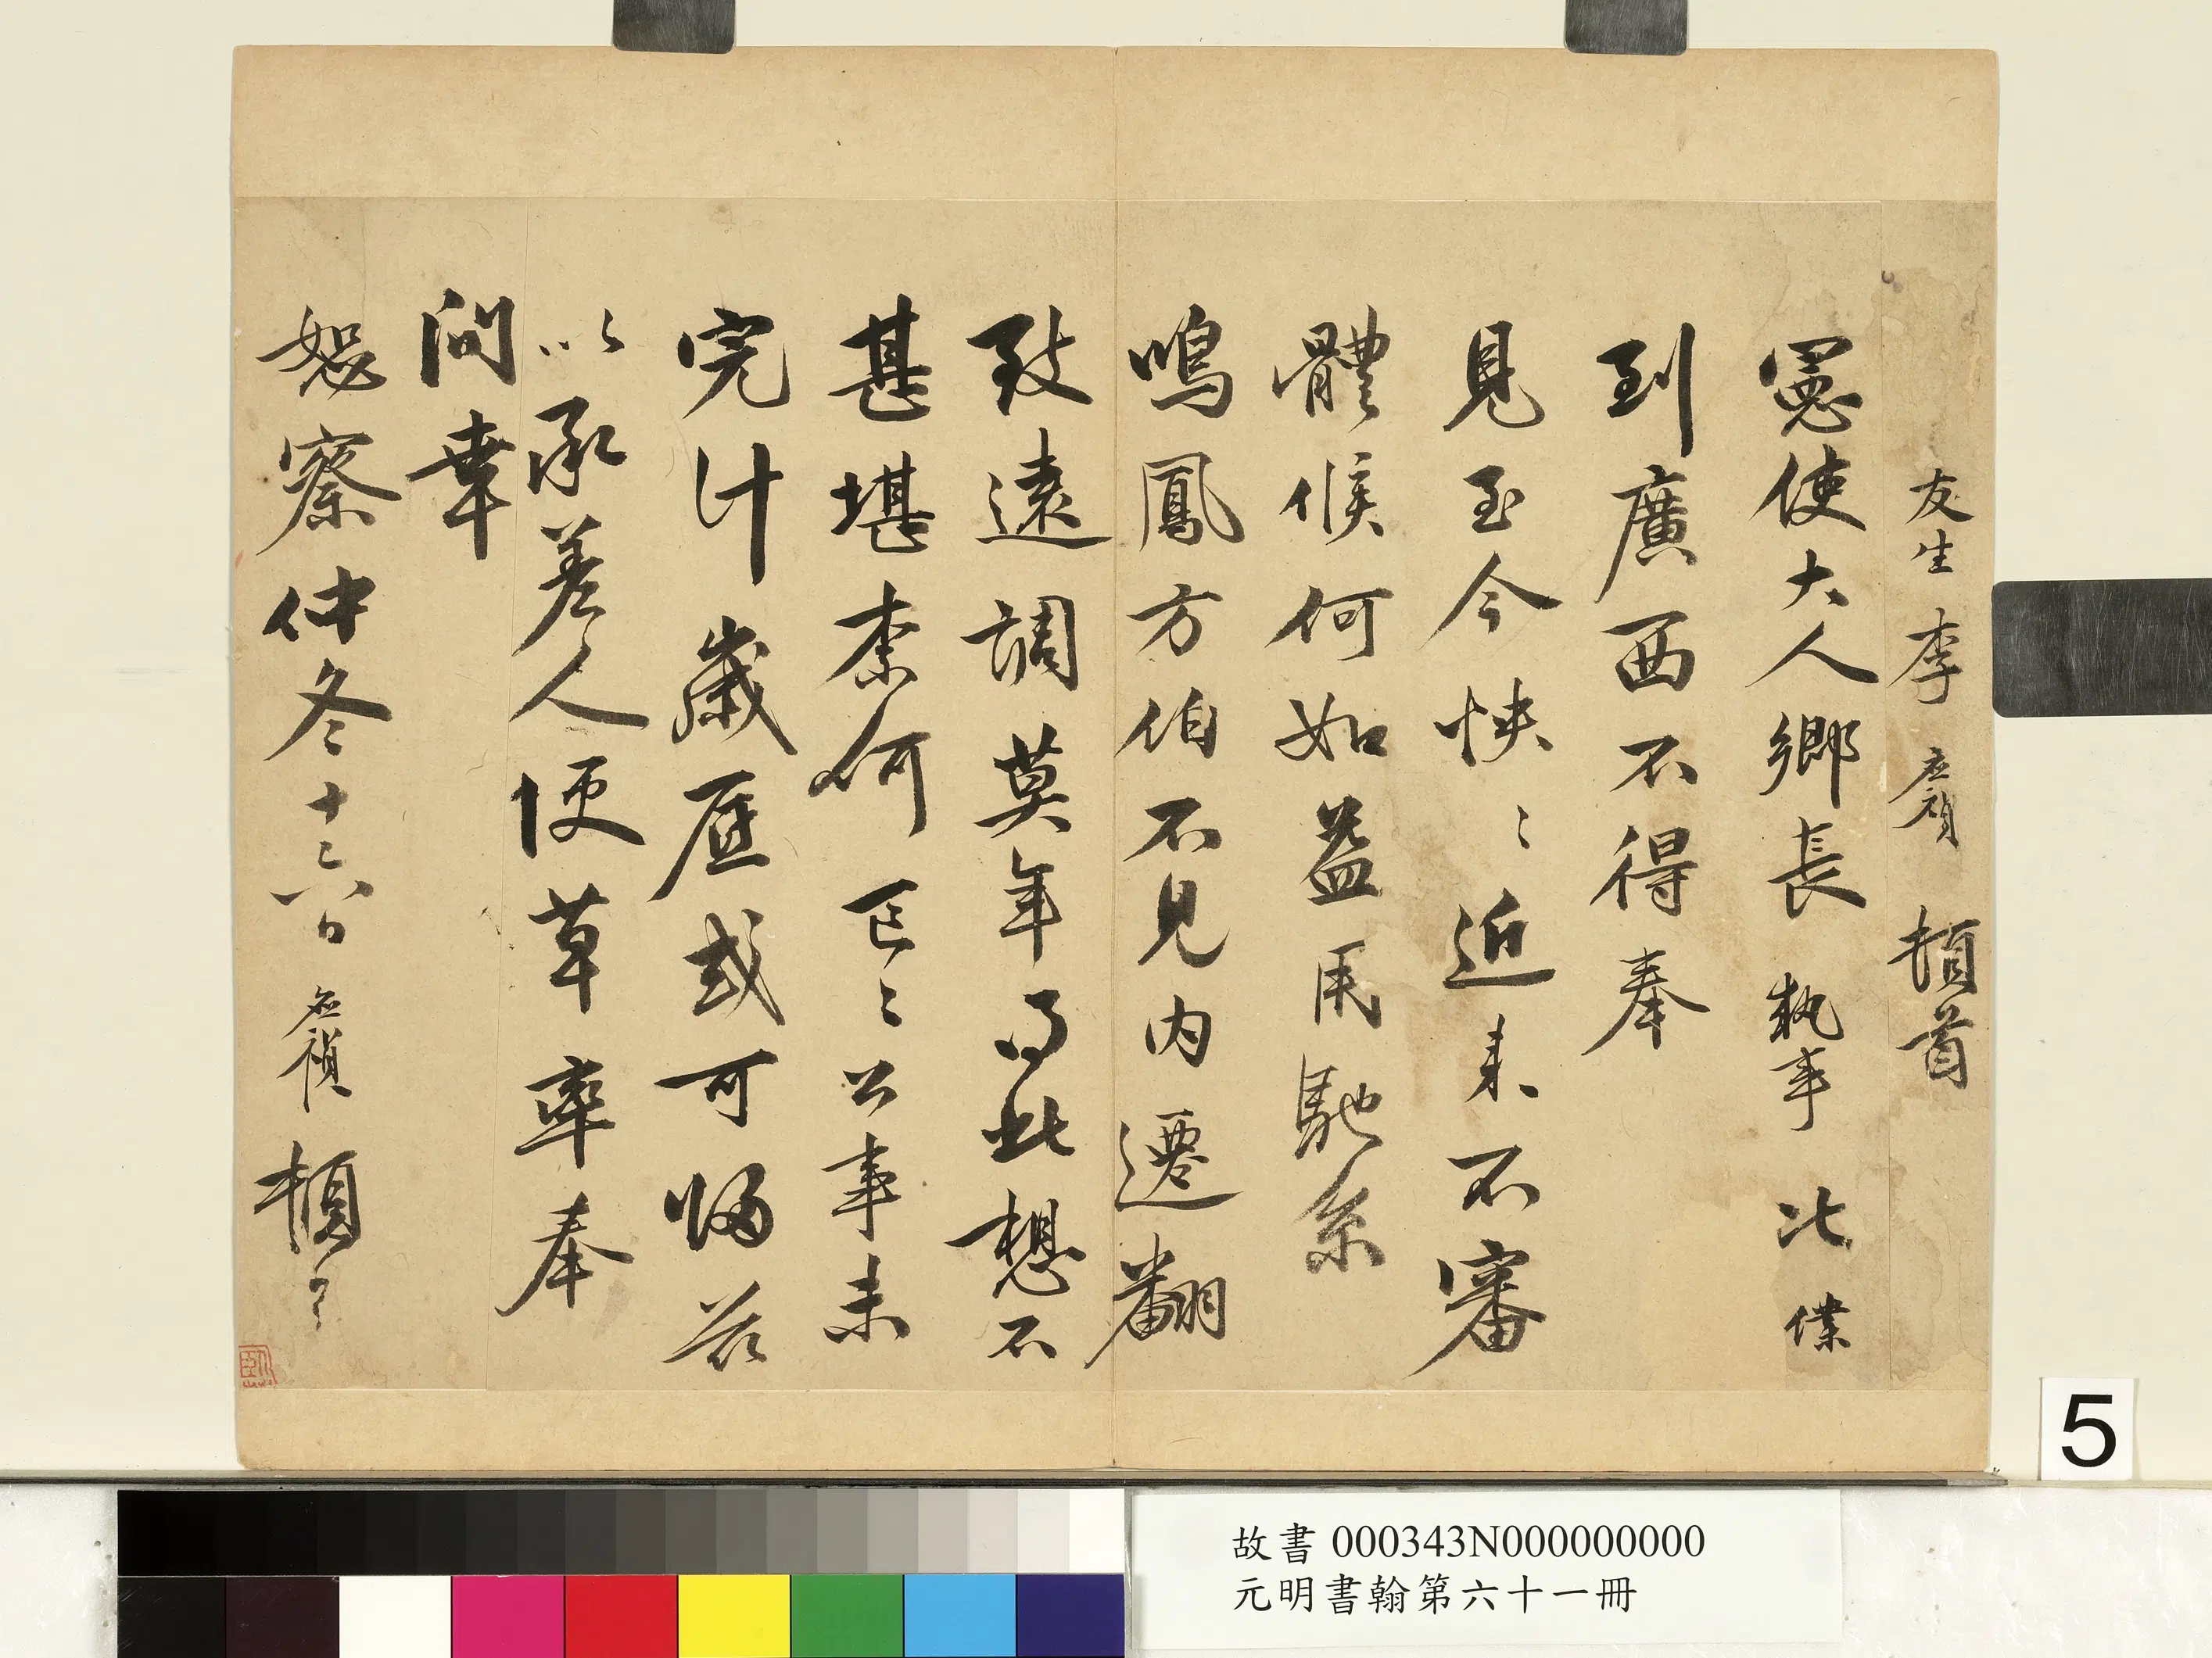 友生李應禎頓首
憲使大人鄉長執事比僕
到廣西不得奉
見至今怏〻近來不審
體候何如益用馳系
鳴鳳方伯不見內遷翻
致遠調莫年得此想不
甚堪柰何〻公事未
完計歲莫或可歸茲
以承差人便草率奉
問幸
恕察仲冬十六日應禎頓首
故書 000343N000000000
元明書翰第六十一冊
5